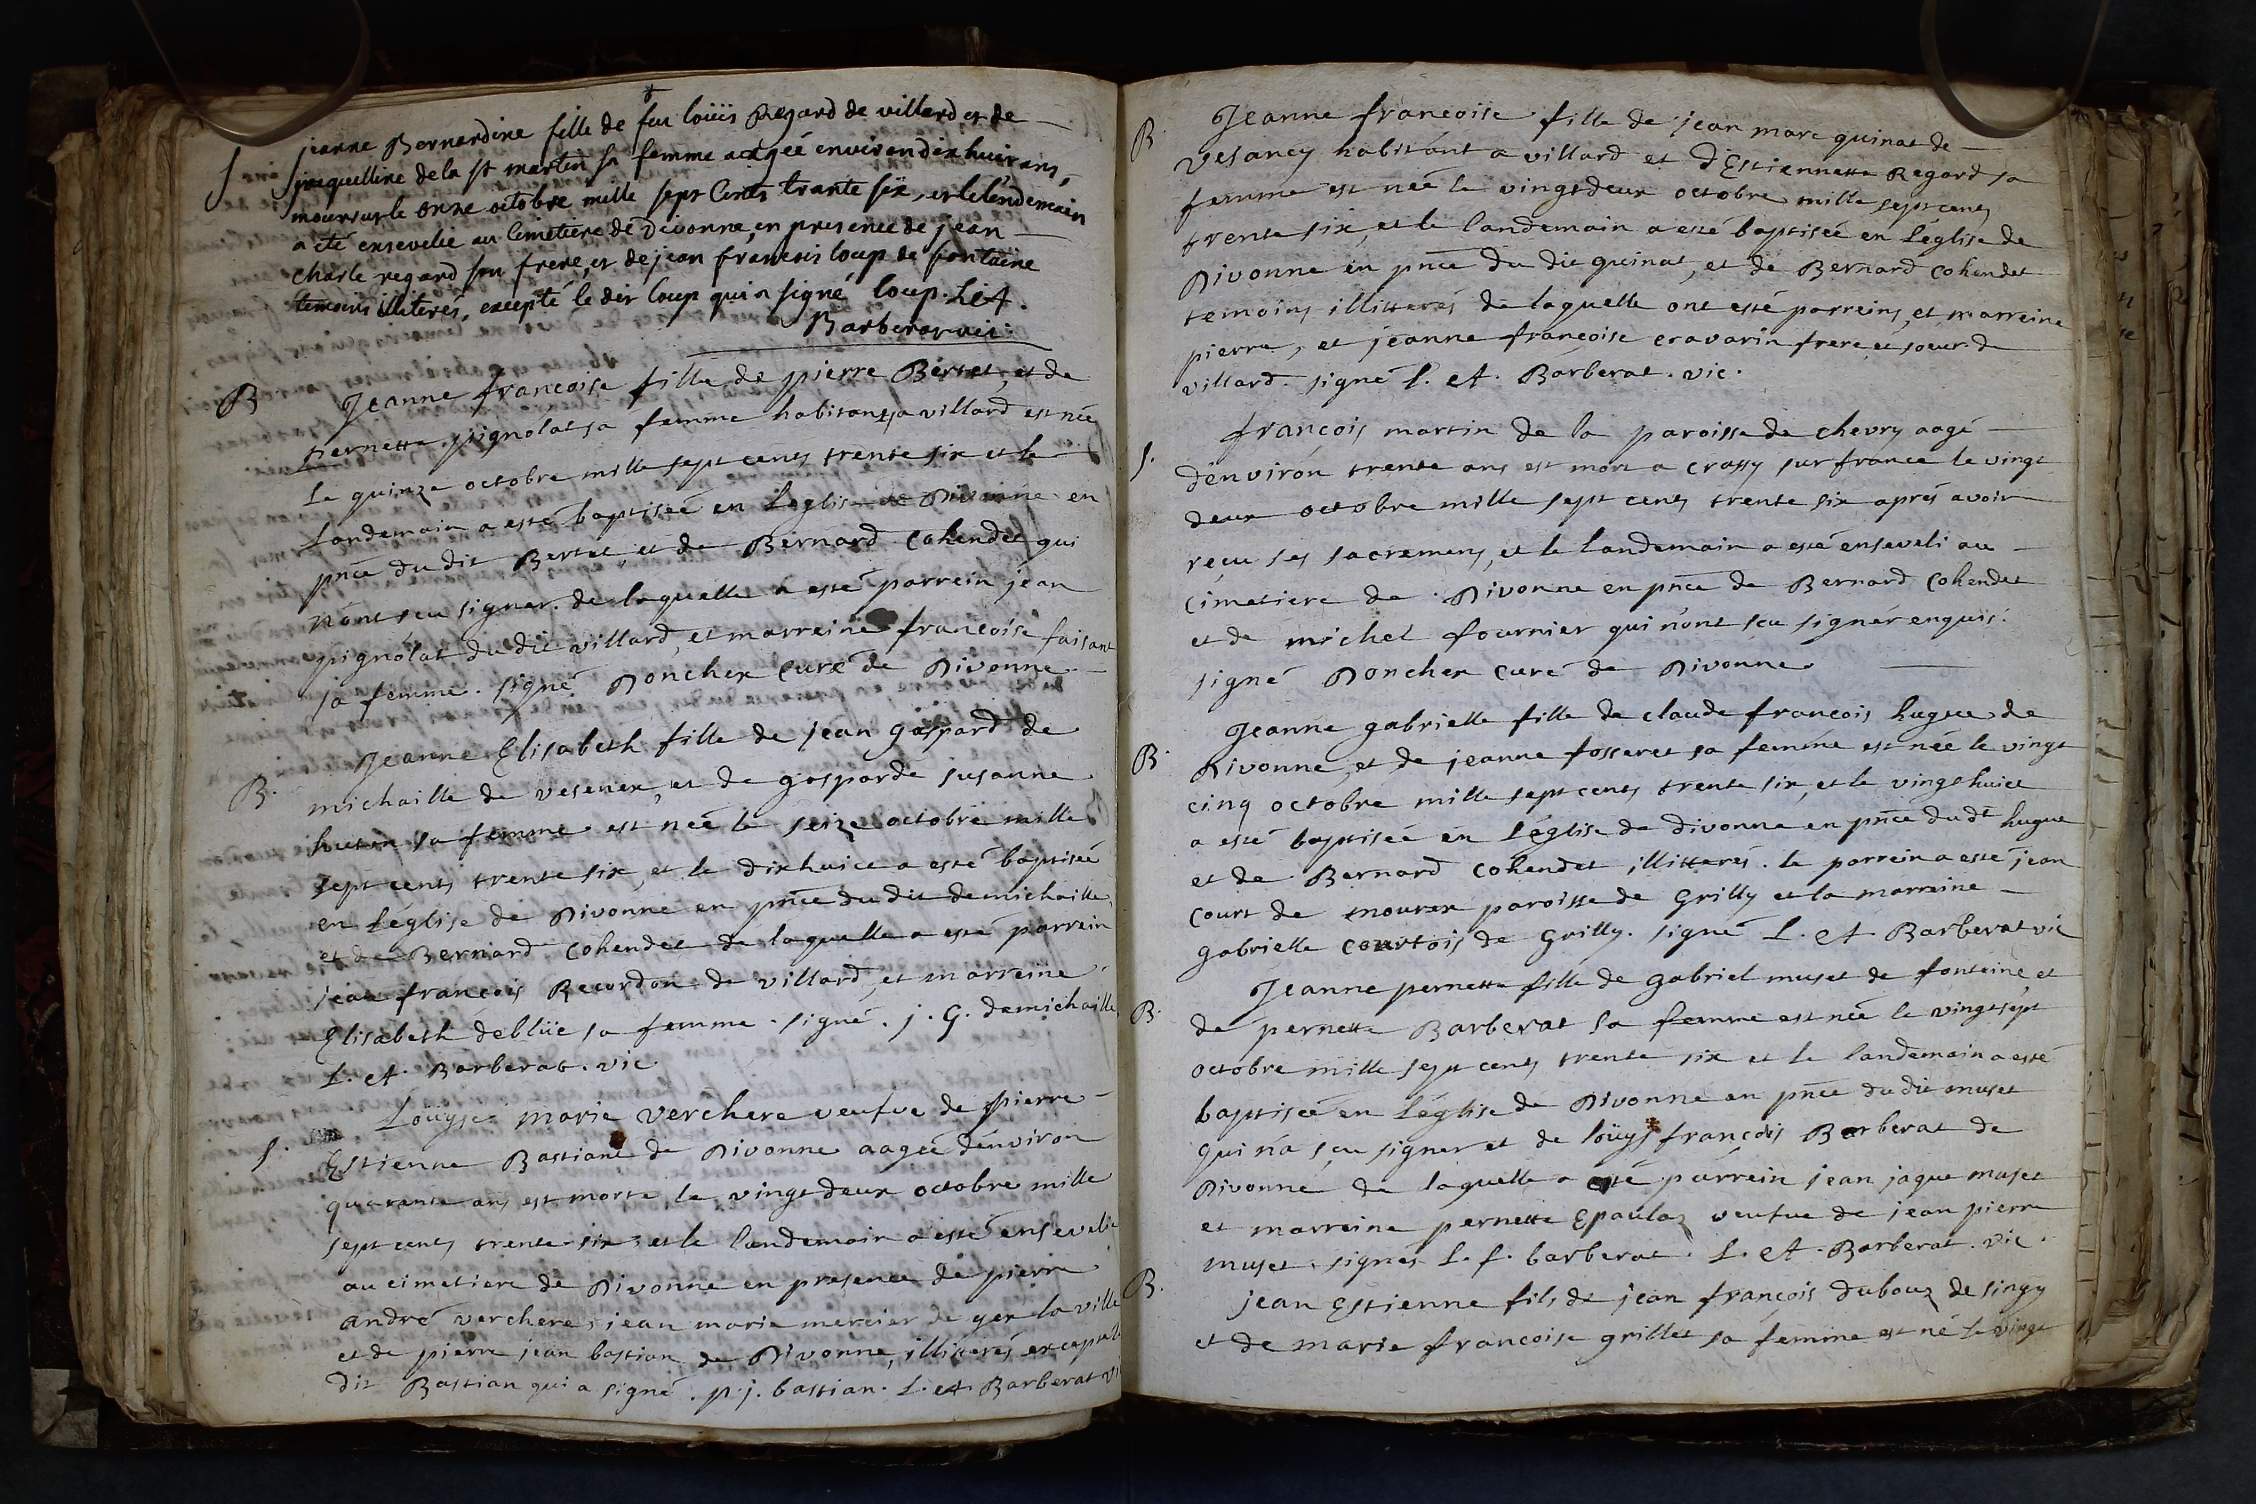 S jeanne Bernardine fille de feu loüis Regard de villard et de
jaquelline de la st martin sa femme aagée environ dix huit ans,
mourut le onze octobre mille sept Cents trante six, et le lendemain
a été ensevelie au Cimetiere de Divonne, en presence de jean
charle regard son frere, et de jean francois loup de fontaine
temoins illiterés, excepté le dit loup qui a signé loup. L. A.
Barberat vic:
B Jeanne francoise fille de pierre Bertet, et de
pernette pignolat sa femme habitants a villard est née
le quinze octobre mille sept cents trente six et le
landemain a esté baptisée en Leglise de Divonne en
pnce du dit Bertet, et de Bernard Cohendet qui
n'ont sçu signer. de laquelle a esté parrein jean
pignolat du dit villard, et marreine francoise faisant
sa femme. signé Doncher Curé de Divonne
B. Jeanne Elisabeth fille de jean gaspard de
michaille de vesenex, et de gasparde susanne
huten sa femme est née le seize octobre mille
sept cents trente six, et le dixhuict a esté baptisée
en Léglise de Divonne en pnce du dit demichaille,
et de Bernard Cohendet de laquelle a esté parrein
jean francois Recordon de villard, et marreine
Elisabeth deblüe sa femme. signé. j. G. demichaille
L. A. Barberat. vic.
S. Loüyse marie verchere veufve de pierre
Estienne Bastian de Divonne aagée d'environ
quarante ans est morte le vingt deux octobre mille
sept cents trente six, et le landemain a esté ensevelie
au cimetiere de Divonne en presence de pierre
andré verchere, jean marie mercier de gex la ville
et de pierre jean bastian de Divonne, illiterés excepté le
dit Bastian qui a signé. p. j. bastian. L. A. Barberat vi
B Jeanne francoise fille de jean marc quinat de
vesancy habitant a villard et d'Estiennette Regard sa
femme est née le vingtdeux octobre mille sept cents
trente six, et le landemain a esté baptisée en Leglise de
Divonne en pnce du dit quinat, et de Bernard Cohendet
temoins illitterés de laquelle ont esté parreins, et marreine
pierre, et jeanne françoise cravarin frere et soeur de
villard. signé L. A. Barberat. vic.
S. françois martin de la paroisse de chevry aagé
d'environ trente ans est mort a Crassy sur france le vingt
deux octobre mille sept cents trente six aprés avoir
reçu ses sacremens, et le landemain a esté enseveli au
Cimetiere de Divonne en pnce de Bernard Cohendet
et de michel fournier qui n'ont sçu signér enquis.
signé Doncher Curé de Divonne
B. Jeanne gabrielle fille de claude françois hugue de
Divonne, et de jeanne fosseret sa femme est née le vingt
cinq octobre mille sept cents trente six, et le vingthuict
a esté baptisée en Léglise de divonne en pnce du dt hugue
et de Bernard Cohendet, illitterés. le parrein a esté jean
Court de mourex paroisse de Grilly et la marreine
gabrielle courtois de Grilly. signé L. A Barberat vic
B. Jeanne pernette fille de gabriel muset de fonteine et
de pernette Barberat sa femme est née le vingtsept
octobre mille sept cents trente six et le landemain a esté
baptisée en Léglise de Divonne en pnce du dit muset
qui n'a sçu signer et de loüys françois Barberat de
Divonne de laquelle a esté parrein jean jaque muset
et marreine pernette Epaulaz veufve de jean pierre
muset. signés L. f. barberat. L. A. Barberat. vic.
B. jean Estienne fils de jean françois dubouz de singy
et de marie francoise grillet sa femme est né le vingt